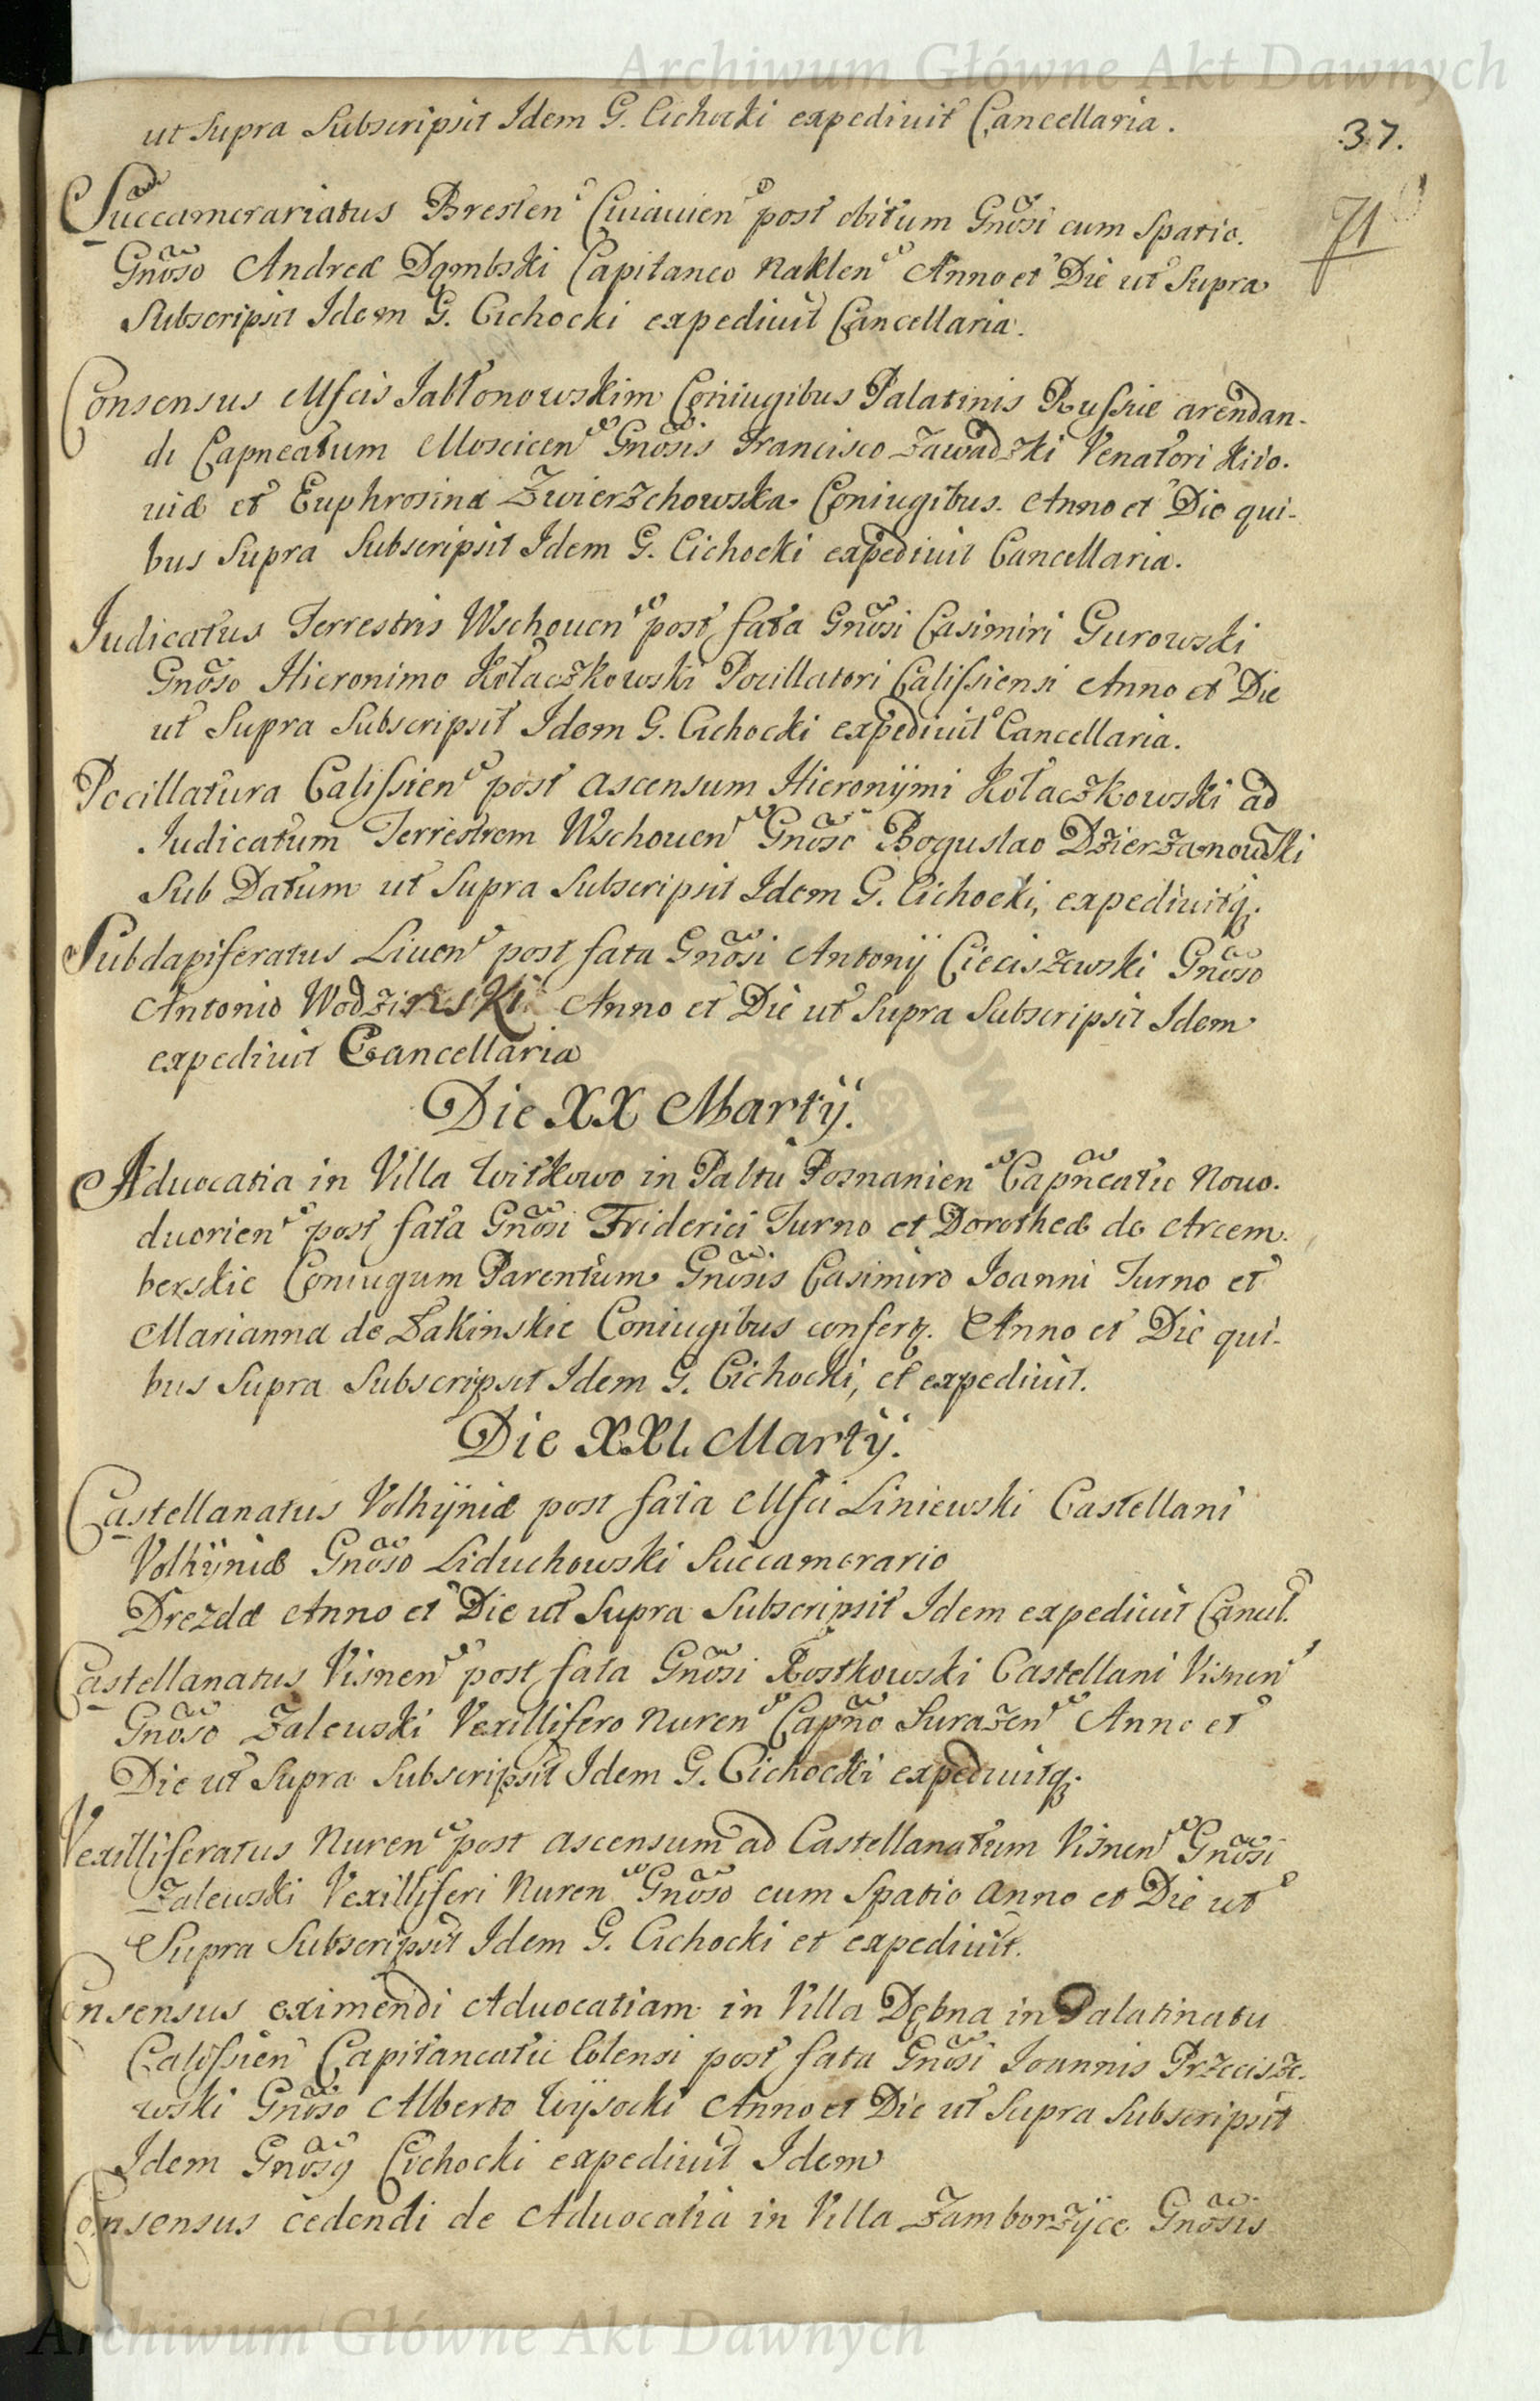 Archiwum Główne Akt Dawnych
ut Supra Subscripsit Idem G. Cichocki expediuit Cancellaria.
37.
71
Succamerariatus Bresten Cuiauien post obitum Gnosi cum Spatio.
Gnoso Andreæ Dąmbski Capitaneo Naklen Anno et Die ut Supra
Subscripsit Idem G. Cichocki expediuit Cancellaria.
Consensus Mfcis Jabłonowskim Coniugibus Palatinis Russiæ arendan-
di Capneatum Moscicen Gnosis Francisco Zawadzki Venatori Kiio-
uiæ et Euphrosinæ Zwierzchowska Coniugibus. Anno et Die qui-
bus Supra Subscripsit Idem G. Cichocki expediuit Cancellaria.
Iudicatus Terrestris Wschouen post fata Gnosi Casimiri Gurowski
Gnoso Hieronimo Kołaczkowski Pocillatori Calissiensi Anno et Die
ut Supra Subscripsit Idem G. Cichocki expediuit Cancellaria.
Pocillatura Calissien post ascensum Hieronymi Kołaczkowski ad
Iudicatum Terrestrem Wschouen Gnoso Boguslao Dzierzanowski
Sub Datum ut Supra Subscripsit Idem G. Cichocki, expediuitq.
Subdapiferatus Liuen post fata Gnosi Antonij Cieciszewski Gnoso
Antonio Wodzinski Anno et Die ut Supra Subscripsit Idem
expediuit Cancellaria
Die XX Martij.
Aduocatia in Villa Witkowo in Paltu Posnanien Capneatu Nouo-
duorien post fata Gnosi Friderici Turno et Dorotheæ de Arcem-
berskie Coniugum Parentum Gnosis Casimiro Joanni Turno et
Marianna de Zakinskie Coniugibus confertr. Anno et Die qui-
bus Supra Subscripsit Idem G. Cichocki, et expediuit.
Die XXI. Martij.
Castellanatus Volhyniæ post fata Mfci Liniewski Castellani
Volhyniæ Gnoso Liduchowski Succamerario
Drezdæ Anno et Die ut Supra Subscripsit Idem expediuit Cancel.
Castellanatus Visnen post fata Gnosi Rostkowski Castellani Visnen
Gnoso Zalewski Vexillifero Nuren Capno Surazen Anno et
Die ut Supra Subscripsit Idem G. Cichocki expediuitq.
Vexilliferatus Nuren post ascensum ad Castellanatum Visnen Gnosi
Zalewski Vexilliferi Nuren Gnoso cum Spatio Anno et Die ut
Supra Subscripsit Idem G. Cichocki et expediuit.
Consensus eximendi Aduocatiam in Villa Dębna in Palatinatu
Calissien Capitaneatu Colensi post fata Gnosi Joannis Przecisze-
wski Gnoso Alberto Wysocki Anno et Die ut Supra Subscripsit
Idem Gnosg Cichocki expediuit Idem
Consensus cedendi de Aduocatia in Villa Zamborzyce Gnosis
Archiwum Główne Akt Dawnych